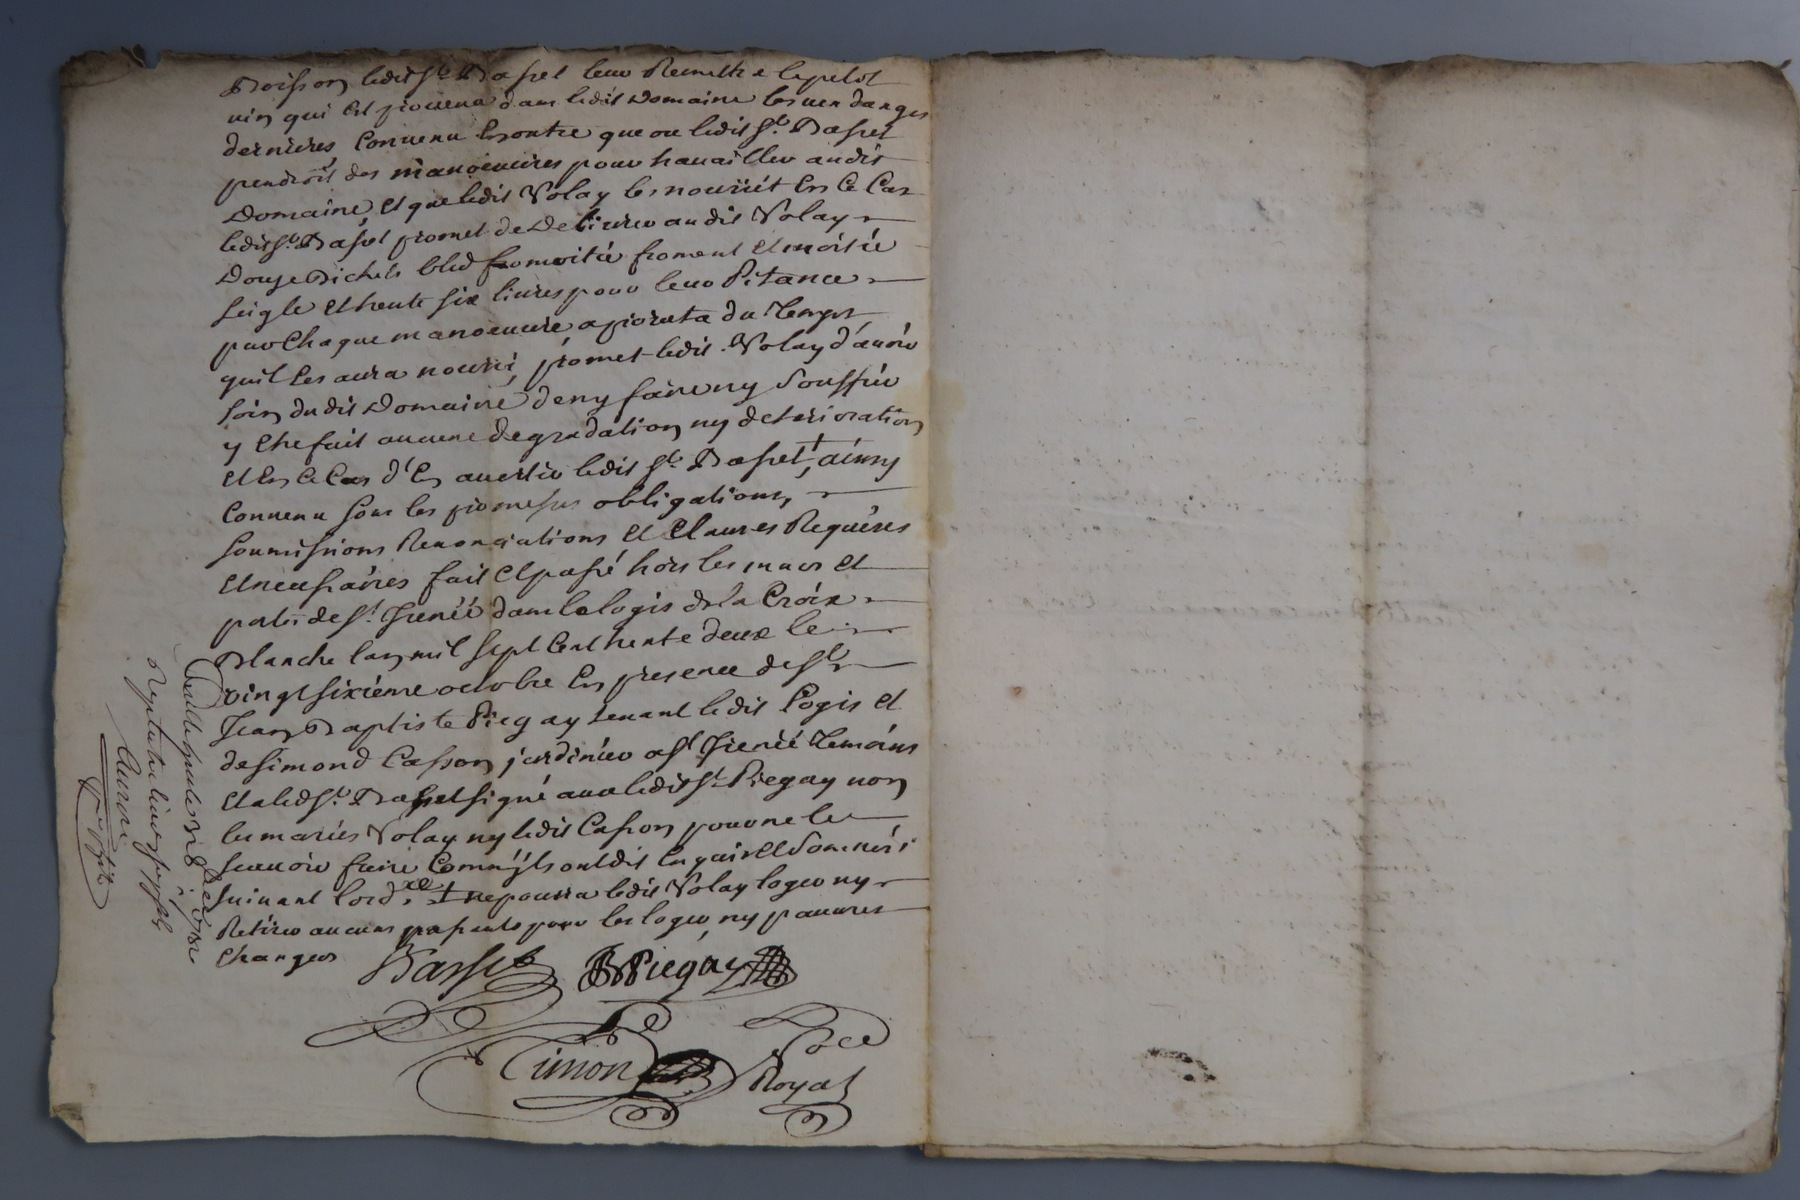 Boisson ledit Sr. Basset leur Remettra le petit
vin qui est provenu dans ledit Domaine les vendanges
dernieres Convenu En outre que ou ledit Sr. Basset
prendroit des manoeuvres pour travailler audit
Domaine, et que ledit Volay les nourrit En Ce Cas
ledit Sr. Basset promet de Delivrer audit Volay
Douze Bichets bled moitié froment et moitié
seigle et trente six livres pour leur Pitance
pour Chaque manoeuvre a prorata du Temps
quil Les aura nourri, promet ledit Volay d'avoir
soin dudit Domaine de ny faire ny souffrir
y Etre fait aucune degradation ny deterioration
et En Ce Cas d'En avertir ledit Sr. Basset + ainsy
Convenu sous les promesses obligations,
soumissions Renonciations et Clauses Requises
et necessaires fait et passé hors les murs et
portes de St. Irenée dans le logis de la Croix
Blanche lan mil sept Cent trente deux le
vingt sixieme octobre En presence de Sr.
Jean Baptiste Piegay tenant ledit Logis et
de Simond Casson jardinier a St. Irenée Temoins
et a led Sr. Basset signé avec ledit Sr. Piegay non
les mariés Volay ny ledit Casson pour ne le
scavoir faire Comm'ils ont dit Enquis et sommés
suivant lord.ce + ne pourra ledit Volay loger ny
Retirer aucuns passants pour les loger, ny pauvres
Etrangers
Basset BPiegay
Simon Pre
Royal